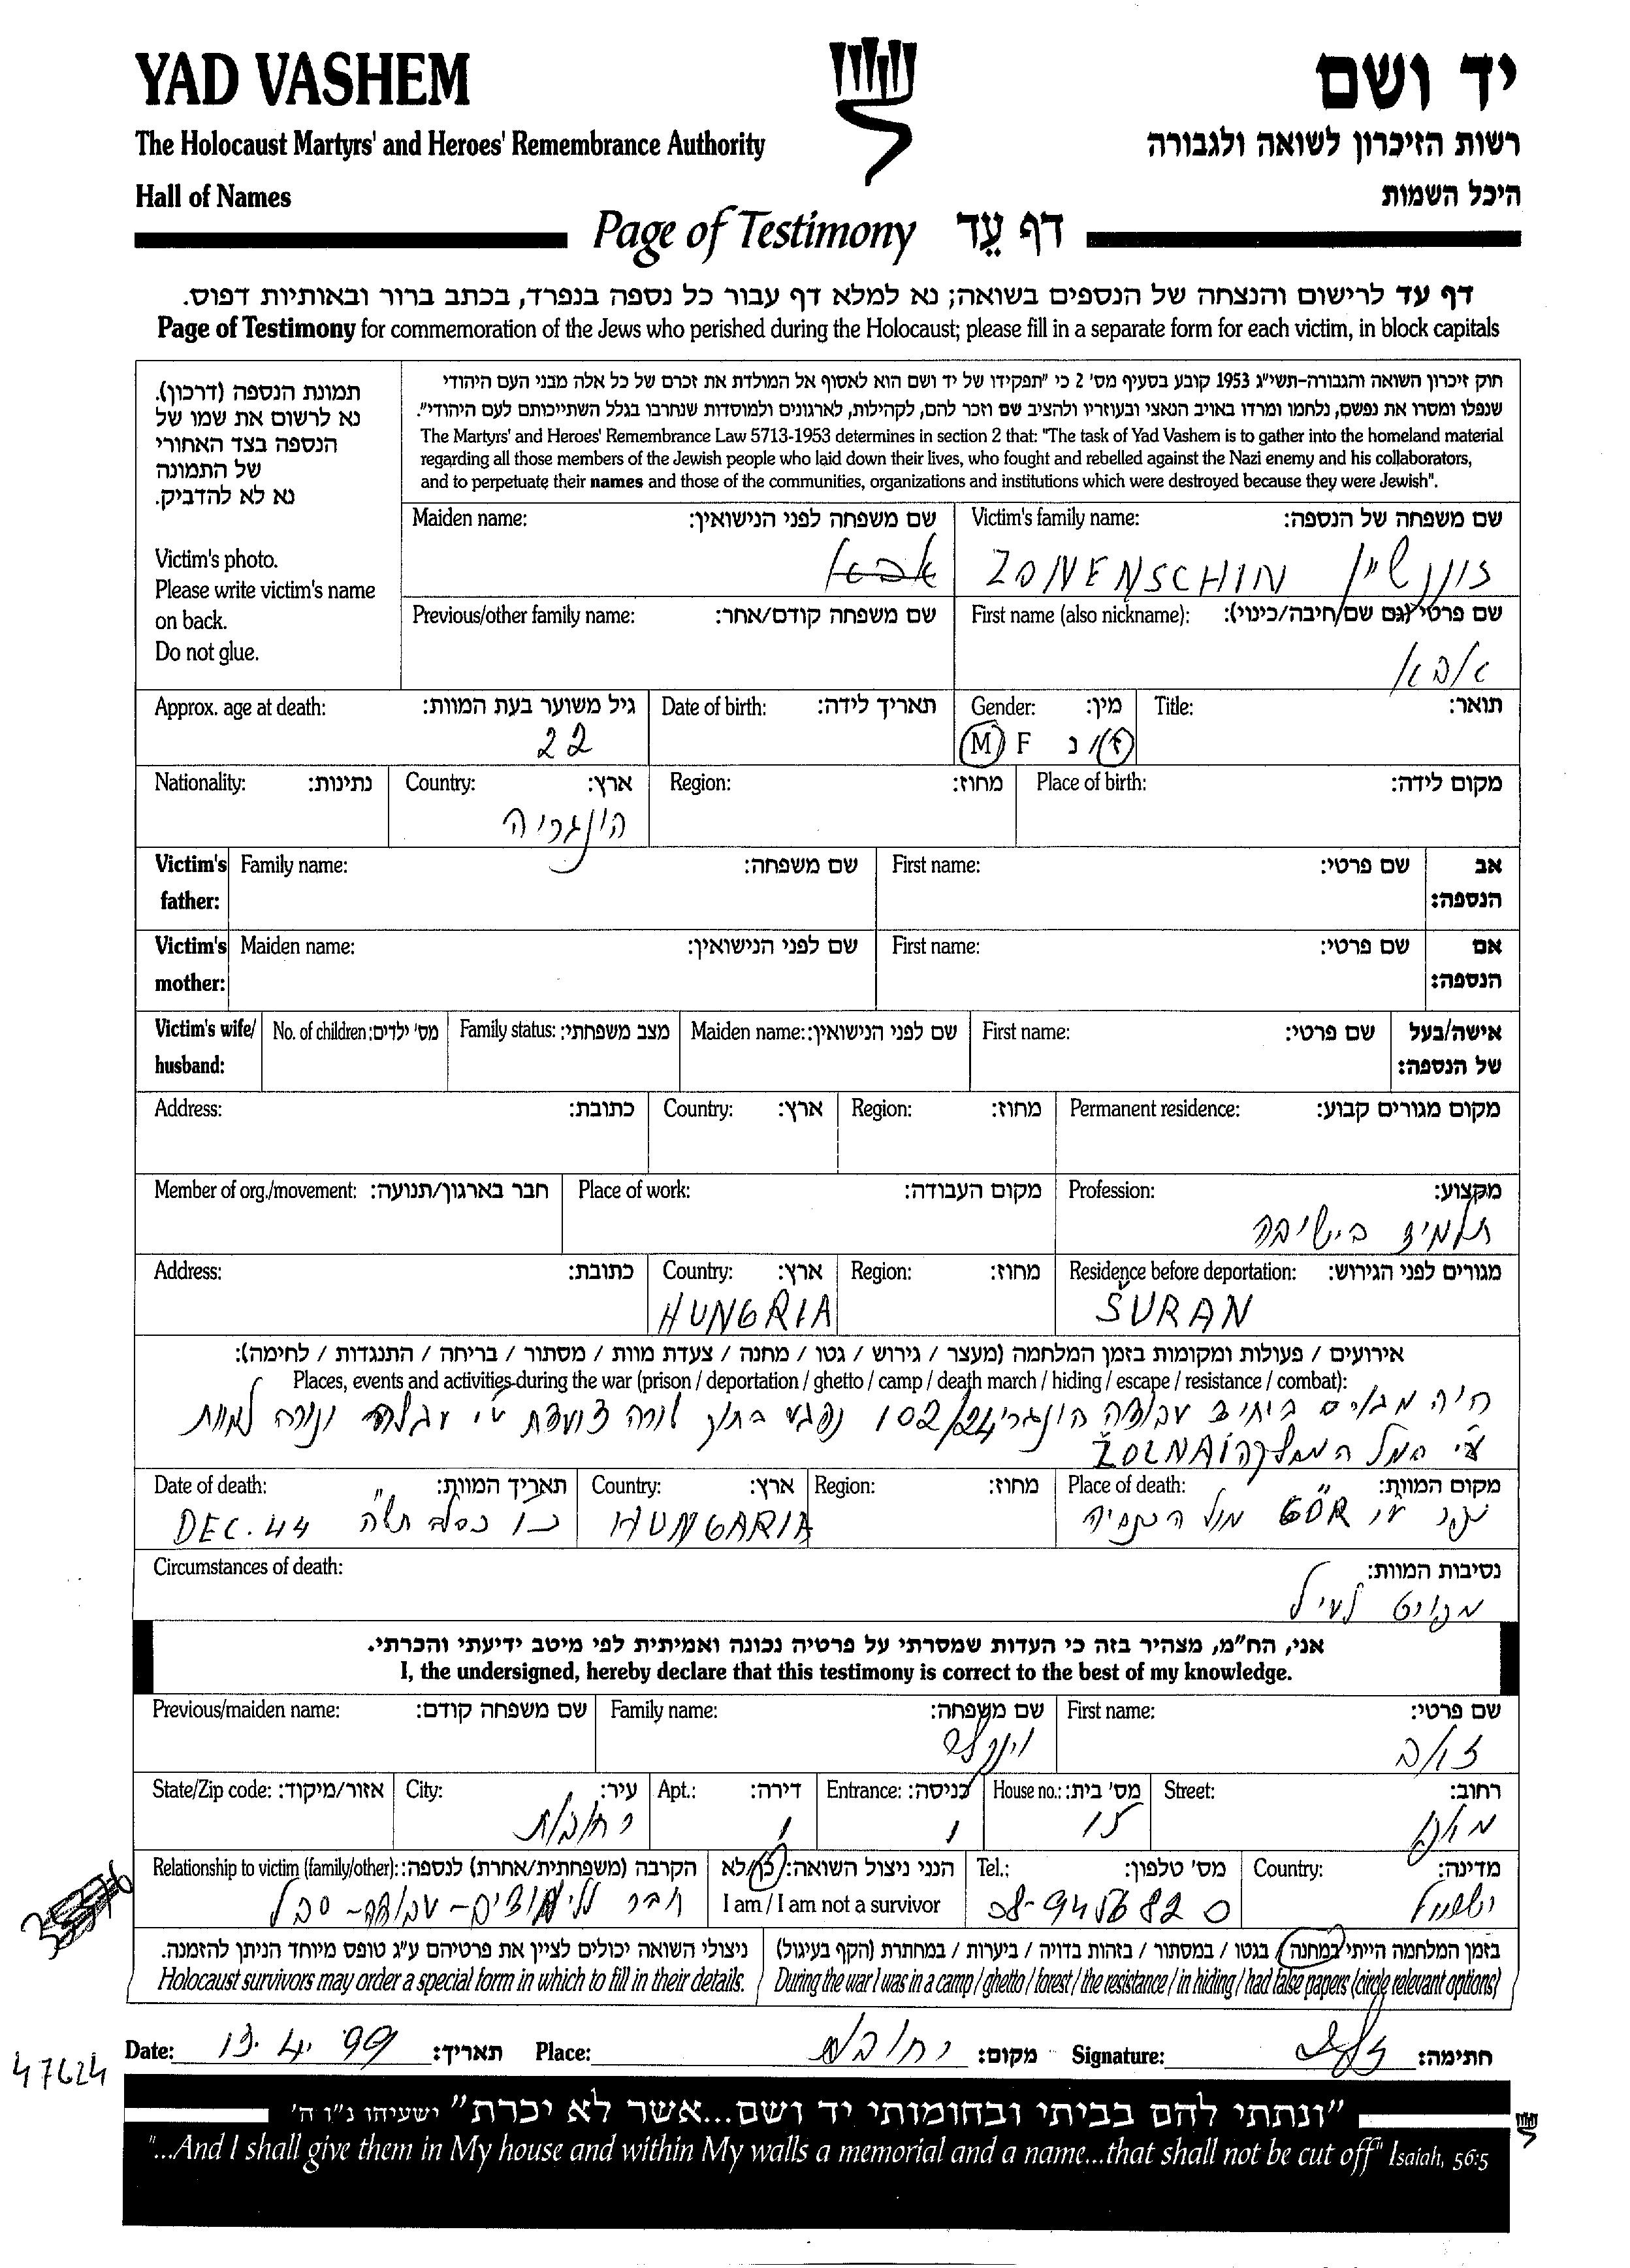 YAD VASHEM
יד ושם
The Holocaust Martyrs' and Heroes' Remembrance Authority
רשות הזיכרון לשואה ולגבורה
Hall of Names
היכל השמות
Page of Testimony דף עֵד
דף עד לרישום והנצחה של הנספים בשואה; נא למלא דף עבור כל נספה בנפרד, בכתב ברור ובאותיות דפוס.
Page of Testimony for commemoration of the Jews who perished during the Holocaust; please fill in a separate form for each victim, in block capitals
תמונת הנספה (דרכון).
נא לרשום את שמו של
הנספה בצד האחורי
של התמונה
נא לא להדביק.
Victim's photo.
Please write victim's name
on back.
Do not glue.
חוק זיכרון השואה והגבורה-תשי"ג 1953 קובע בסעיף מס' 2 כי "תפקידו של יד ושם הוא לאסוף אל המולדת את זכרם של כל אלה מבני העם היהודי
שנפלו ומסרו את נפשם, נלחמו ומרדו באויב הנאצי ובעוזריו ולהציב שם וזכר להם, לקהילות, לארגונים ולמוסדות שנחרבו בגלל השתייכותם לעם היהודי".
The Martyrs' and Heroes' Remembrance Law 5713-1953 determines in section 2 that: "The task of Yad Vashem is to gather into the homeland material
regarding all those members of the Jewish people who laid down their lives, who fought and rebelled against the Nazi enemy and his collaborators,
and to perpetuate their names and those of the communities, organizations and institutions which were destroyed because they were Jewish".
Maiden name: שם משפחה לפני הנישואין:
אבא
Victim's family name: שם משפחה של הנספה:
ZONENSCHIN זוננשיין
Previous/other family name: שם משפחה קודם/אחר:
First name (also nickname): שם פרטי (גם שם/חיבה/כינוי):
אבא
Approx. age at death: גיל משוער בעת המוות:
22
Date of birth: תאריך לידה:
Gender: מין:
M F ז / נ
Title: תואר:
Nationality: נתינות:
Country: ארץ:
הונגריה
Region: מחוז:
Place of birth: מקום לידה:
Victim's father: Family name: שם משפחה: First name: שם פרטי: אב הנספה:
Victim's mother: Maiden name: שם לפני הנישואין: First name: שם פרטי: אם הנספה:
Victim's wife/ husband: No. of children: מס' ילדים: Family status: מצב משפחתי: Maiden name: שם לפני הנישואין: First name: שם פרטי: אישה/בעל של הנספה:
Address: כתובת: Country: ארץ: Region: מחוז: Permanent residence: מקום מגורים קבוע:
Member of org./movement: חבר בארגון/תנועה: Place of work: מקום העבודה: Profession: מקצוע:
תלמיד בישיבה
Address: כתובת: Country: ארץ: Region: מחוז: Residence before deportation: מגורים לפני הגירוש:
HUNGRIA ŠURAN
אירועים / פעולות ומקומות בזמן המלחמה (מעצר / גירוש / גטו / מחנה / צעדת מוות / מסתור / בריחה / התנגדות / לחימה):
Places, events and activities during the war (prison / deportation / ghetto / camp / death march / hiding / escape / resistance / combat):
היה מגויס ביחיד עבודה הונגרי 102/24 נפגע בתוך שורה צועדת ע"י עגלה ונורה למוות
ע"י הסמל המפקד ZOLNAI
Date of death: תאריך המוות:
DEC. 44 כ"ו כסלב תש"ה
Country: ארץ:
HUNGARIA
Region: מחוז:
Place of death: מקום המוות:
נקבר ע"י GÖR מול הכנסיה
Circumstances of death: נסיבות המוות:
מצוין לעיל
אני, הח"מ, מצהיר בזה כי העדות שמסרתי על פרטיה נכונה ואמיתית לפי מיטב ידיעתי והכרתי.
I, the undersigned, hereby declare that this testimony is correct to the best of my knowledge.
Previous/maiden name: שם משפחה קודם: Family name: שם משפחה: First name: שם פרטי:
וינקלר זאב
State/Zip code: אזור/מיקוד: City: עיר: Apt.: דירה: Entrance: כניסה: House no.: מס' בית: Street: רחוב:
רחובות 1 1 15
Relationship to victim (family/other): הקרבה (משפחתית/אחרת) לנספה:
חבר ללימודים-עבודה-סבל
הנני ניצול השואה: כן/לא
I am / I am not a survivor
Tel.: מס' טלפון:
08-9456820
Country: מדינה:
ישראל
ניצולי השואה יכולים לציין את פרטיהם ע"ג טופס מיוחד הניתן להזמנה.
Holocaust survivors may order a special form in which to fill in their details.
בזמן המלחמה הייתי במחנה / בגטו / במסתור / בזהות בדויה / ביערות / במחתרת (הקף בעיגול)
During the war I was in a camp / ghetto / forest / the resistance / in hiding / had false papers (circle relevant options)
Date: 19.4.'99 תאריך: Place: רחובות מקום: Signature: חתימה:
47624
"ונתתי להם בביתי ובחומותי יד ושם...אשר לא יכרת" ישעיהו נ"ו ה'
"...And I shall give them in My house and within My walls a memorial and a name...that shall not be cut off" Isaiah, 56:5